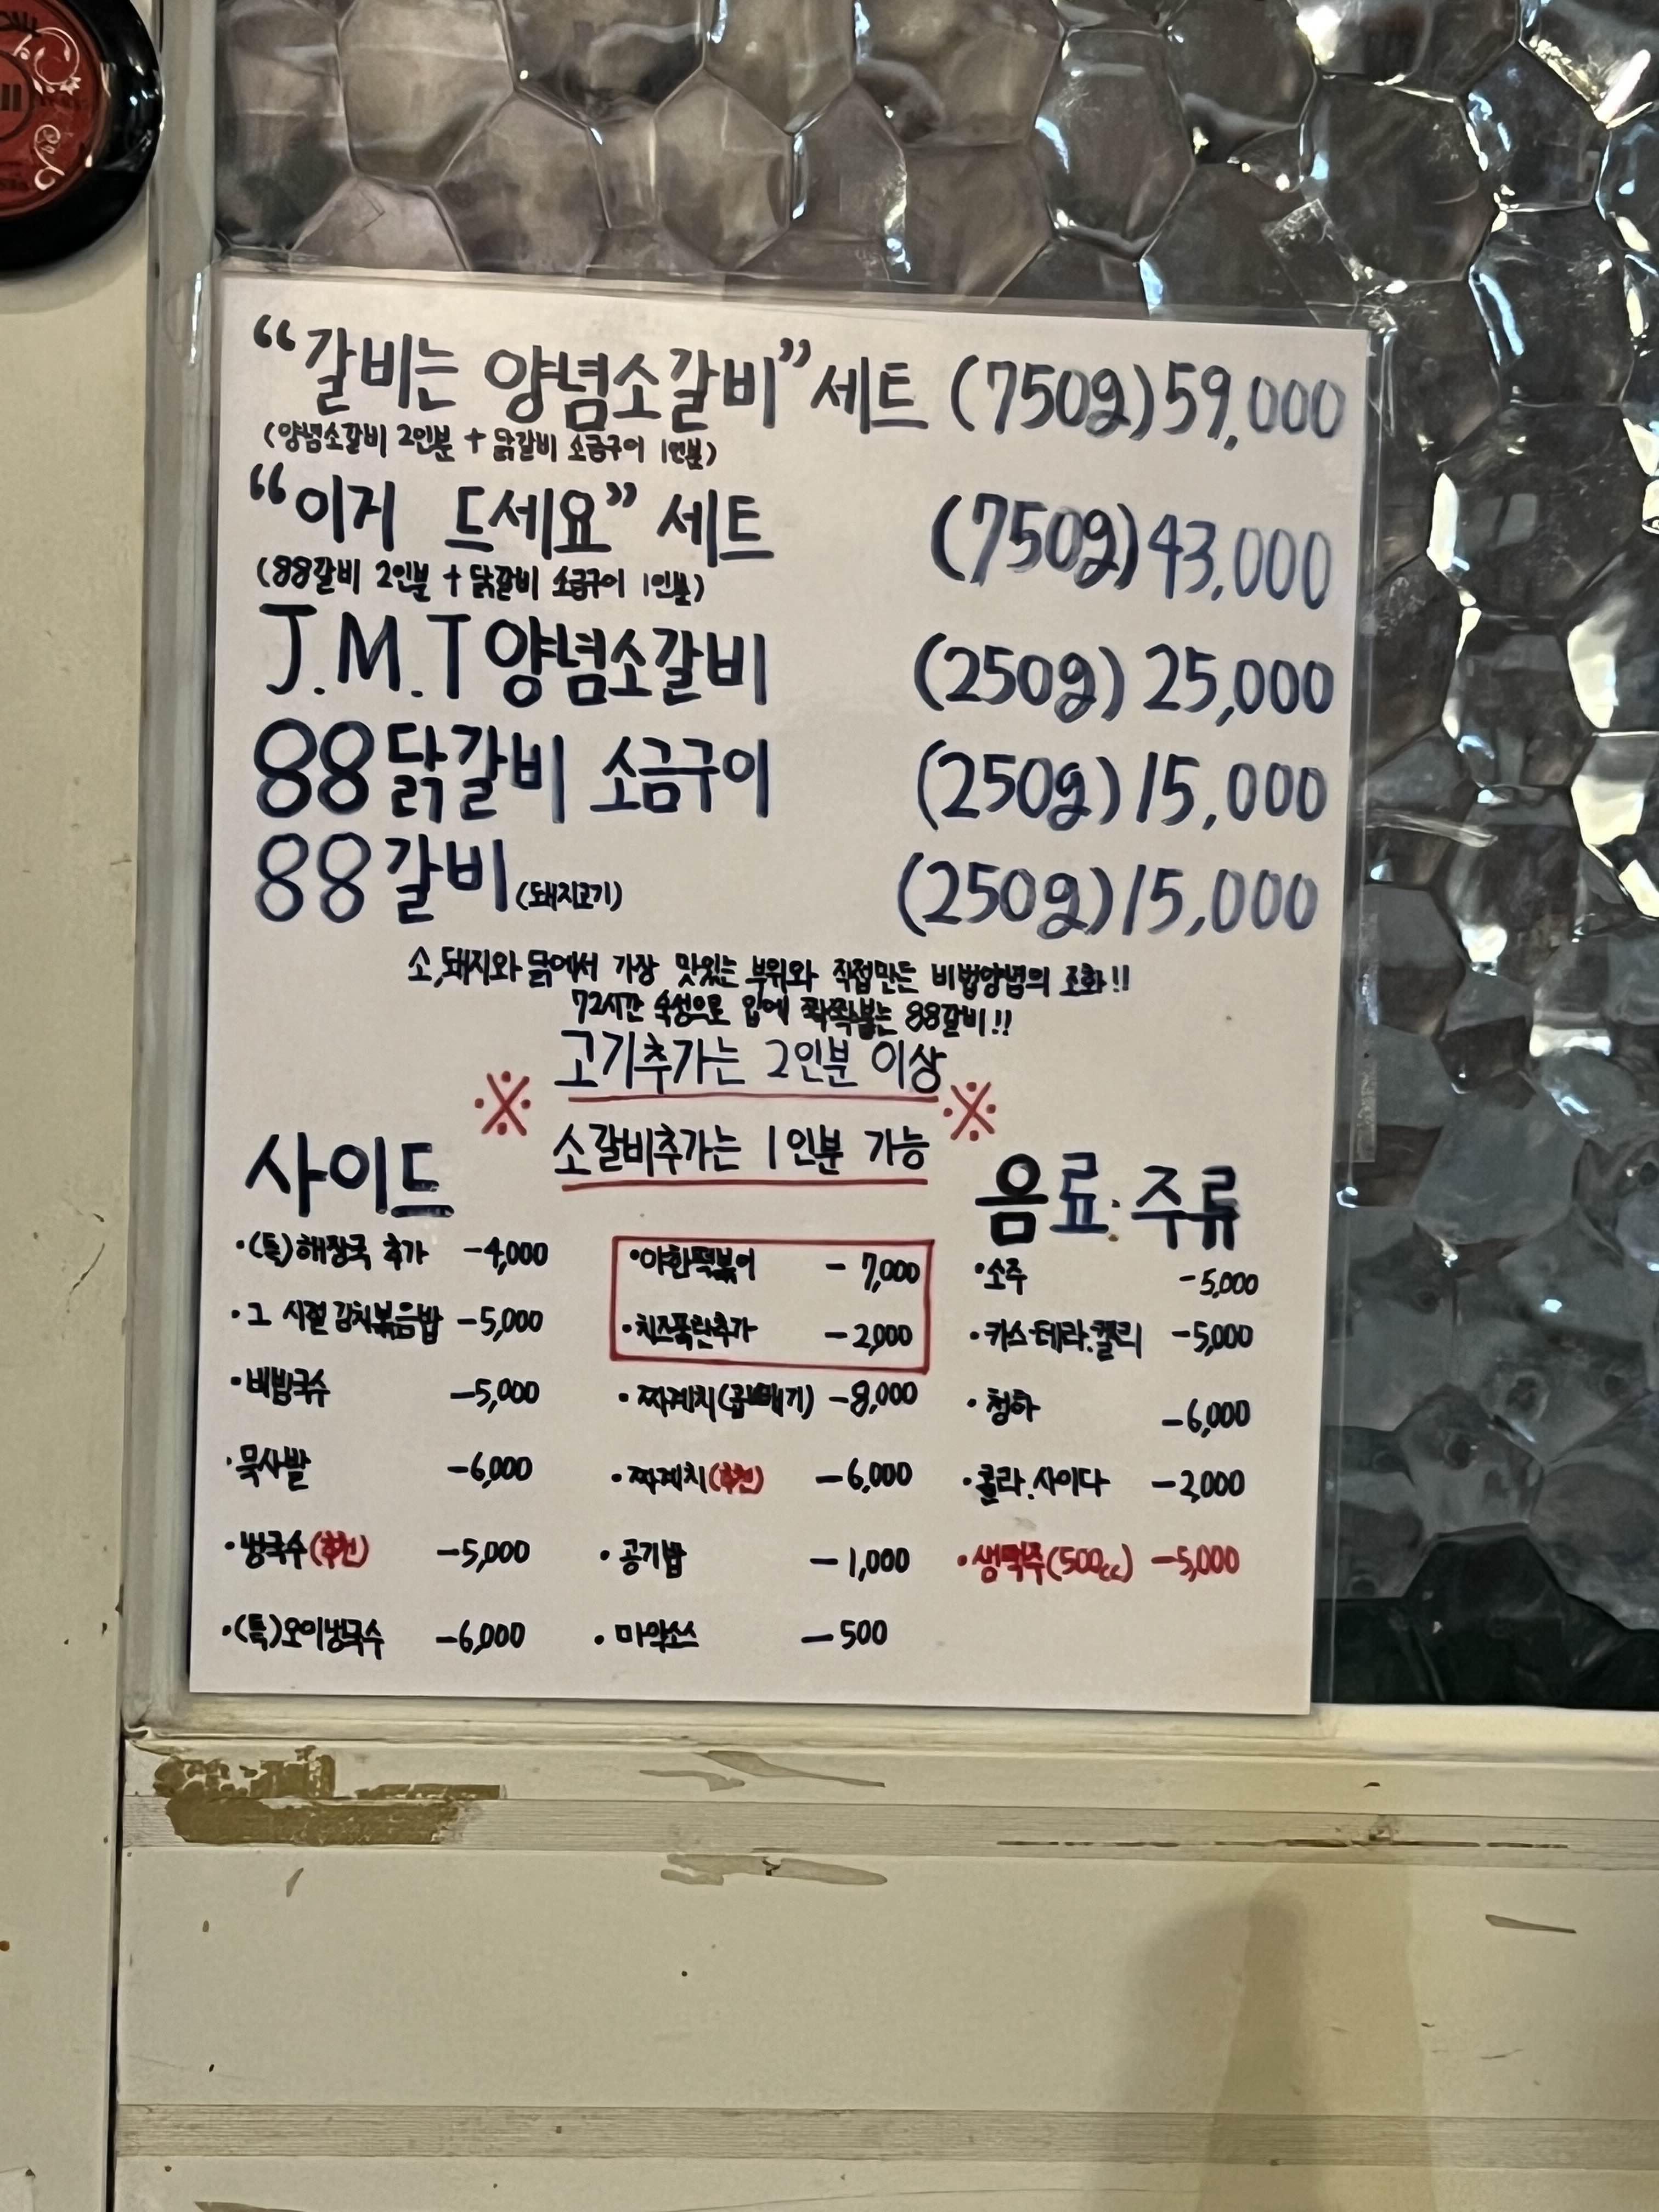 “갈비는 양념소갈비” 세트 (750g) 59,000
(양념소갈비 2인분 + 닭갈비 소금구이 1인분)
“이거 드세요” 세트 (750g) 43,000
(88갈비 2인분 + 닭갈비 소금구이 1인분)
J.M.T 양념소갈비 (250g) 25,000
88닭갈비 소금구이 (250g) 15,000
88갈비 (돼지고기) (250g) 15,000
소,돼지와 닭에서 가장 맛있는 부위와 직접만든 비법양념의 조화!!
72시간 숙성으로 입에 쫙쫙붙는 88갈비!!
※ 고기추가는 2인분 이상 ※
소갈비추가는 1인분 가능
사이드
·(특)해장국 추가 -4,000
·그 시절 김치볶음밥 -5,000
·비빔국수 -5,000
·묵사발 -6,000
·냉국수(추천) -5,000
·(특)오이냉국수 -6,000
·야한떡볶이 - 7,000
·치즈폭탄추가 -2,000
·짜계치(곱빼기) -8,000
·짜계치(추천) -6,000
·공기밥 -1,000
·마약소스 -500
음료·주류
·소주 -5,000
·카스·테라·켈리 -5,000
·청하 -6,000
·콜라.사이다
·생맥주(500cc) -5,000